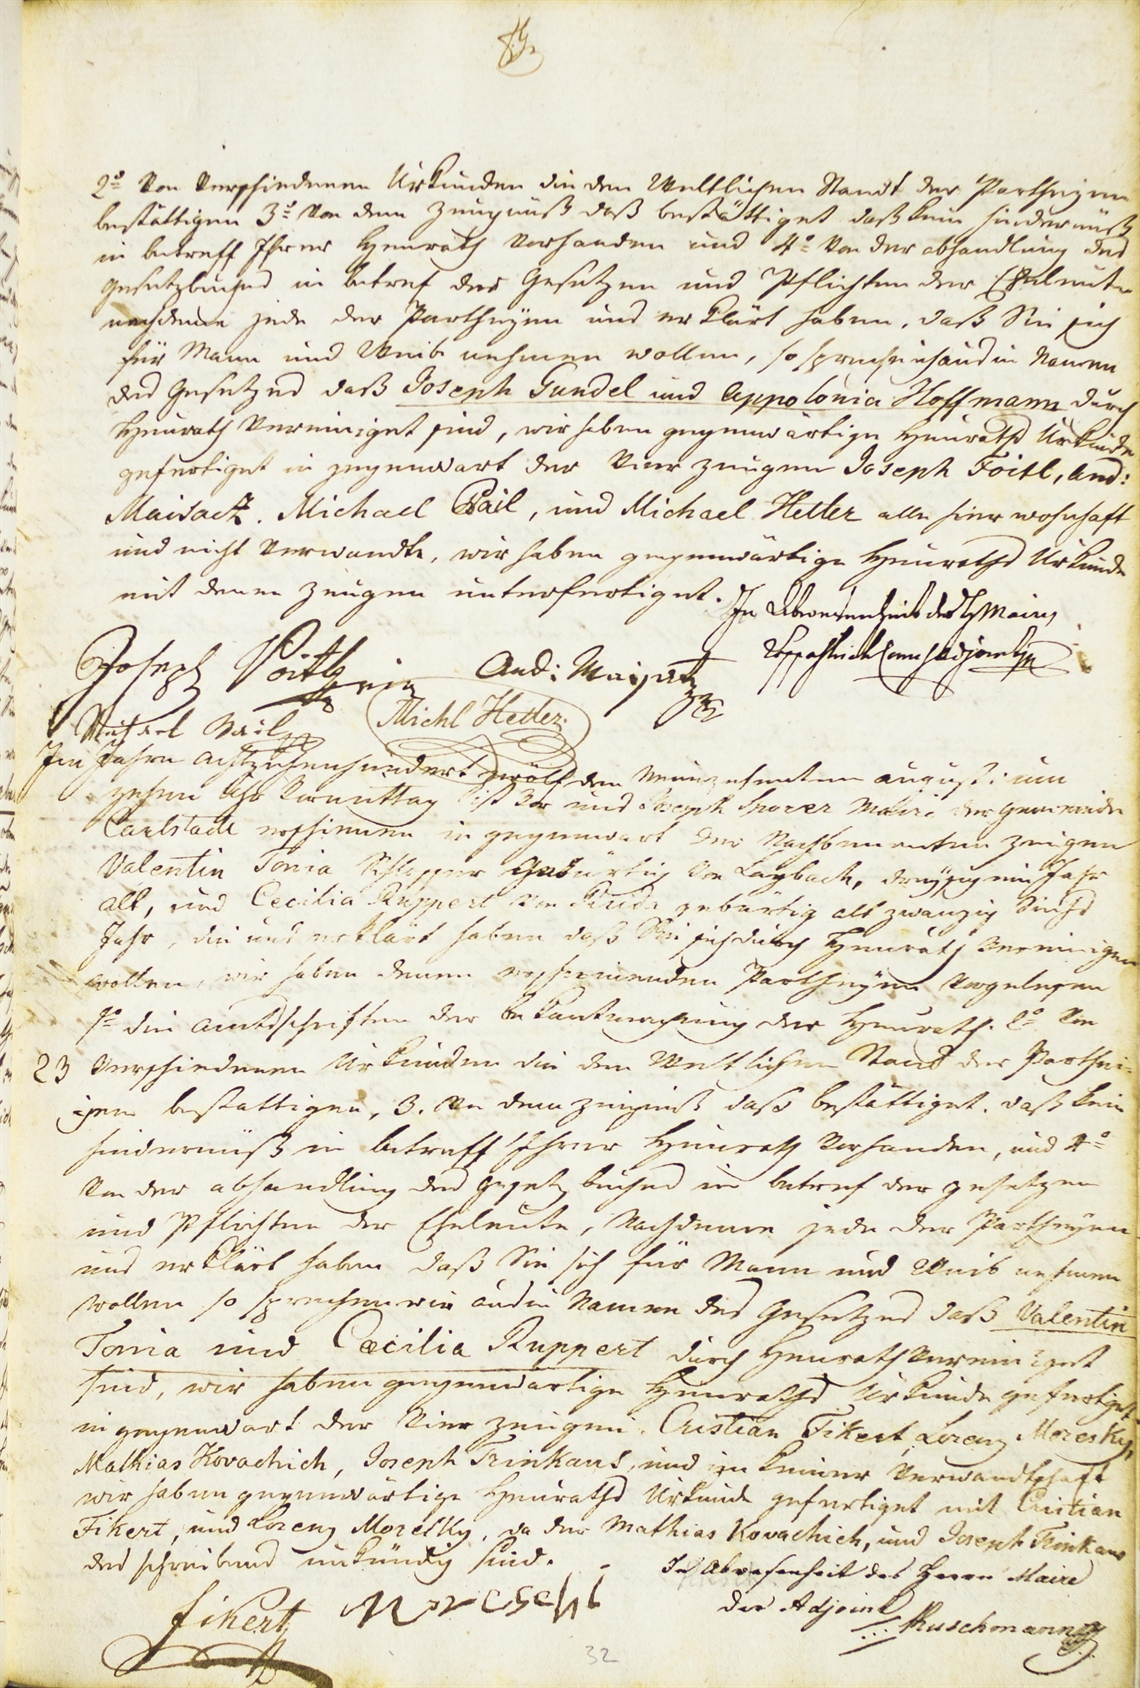 2do Von Verschiedenen Urkunden die den Weltlichen Standt der Partheyen
bestättigen 3o Von dem Zeugnüß daß bestättiget daß kein hindernüß
in betreff Ihrer Heurath Vorhanden und 4o Von der abhandlung des
Gesetzbuches in betref der Gesetzen und Pflichten der Eheleute
nachdeme jede der Partheyen uns erklärt haben, daß Sie sich
für Mann und Weib nehmen wollen, so sprechen in Namen
des Gesetzes daß Joseph Gandel und Appolonia Hoffmann durch
Heurath Vereiniget sind, wir haben gegenwärtige Heuraths Urkunde
gefertiget in gegenwart der Vier Zeugen Joseph Foitl, And:
Maisack. Michael Bail, und Michael Hetler alle hier wohnhaft
und nicht Verwandte, wir haben gegenwärtige Heuraths Urkunde
mit denen Zeugen unterfertiget.
In Abwesenheit des H Maires
Joseph Voitl
And: Maysack
Michael Bail
Michl Hetler
Im Jahre Achtzehenhundert zwölf den Neunzehenten august: um
zehen Uhr Vormittag ist Vor uns Joseph Sporer Maire der Gemeinde
Carlstadt erschienen in gegenwart der Nachbenenten Zeugen
Valentin Tonia Schlosser Gebürtig Von Laybach, dreyßig ein Jahr
alt, und Cecilia Ruppert Von gebürtig alt zwanzig Sechs
Jahr, die uns erklärt haben daß Sie sich durch Heurath Vereinigen
wollen, wir haben denen erscheinenden Partheyen Vorgelesen
1o die Amtsschriften der bekantmachung der Heurath. 2o Von
23 Verschiedenen Urkunden die den Weltlichen Stand der Parthei-
yen bestättigen, 3. Von dem Zeigniß daß bestättiget. daß kein
hindernüß in betreff Ihrer Heurath Vorhanden, und 4o
Von der abhandlung des Gesetz buches in betref der Gesetzen
und Pflichten der Eheleute, Nachdeme jede der Partheyen
uns erklärt haben daß Sie sich für Mann und Weib nehmen
wollen so sprechen wir in Namen des Gesetzes daß Valentin
Tonia und Cæcilia Ruppert durch Heurath Vereiniget
sind, wir haben gegenwärtige Heuraths Urkunde gefertiget
in gegenwart der Vier Zeugen. Cristian Fikert, Lorenz Moresky,
Mathias Kovachich, Joseph Trinkaus, und in keiner Verwandtschaft
wir haben gegenwärtige Heuraths Urkunde gefertiget mit Cristian
Fikert, und Lorenz Moresky, da der Mathias Kovachich, und Joseph Trinkaus
des schreibens unkündig sind.
In Abwesenheit des Herrn Maire
der Adjoint
Ruschmann
Fikert
Moreschi
32